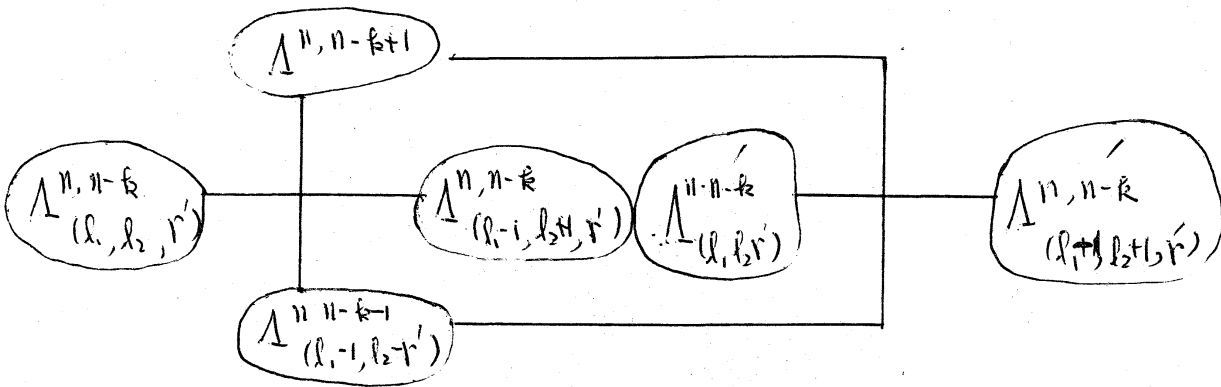 Λ^{n, n-k+1}
Λ^{n, n-k}_{(l_1, l_2, r')}
Λ^{n, n-k}_{(l_1-1, l_2+1, r')}
Λ'^{n-n-k}_{(l_1 l_2 r')}
Λ'^{n, n-k}_{(l_1+1, l_2+1, r')}
Λ^{n n-k-1}_{(l_1-1, l_2-r')}